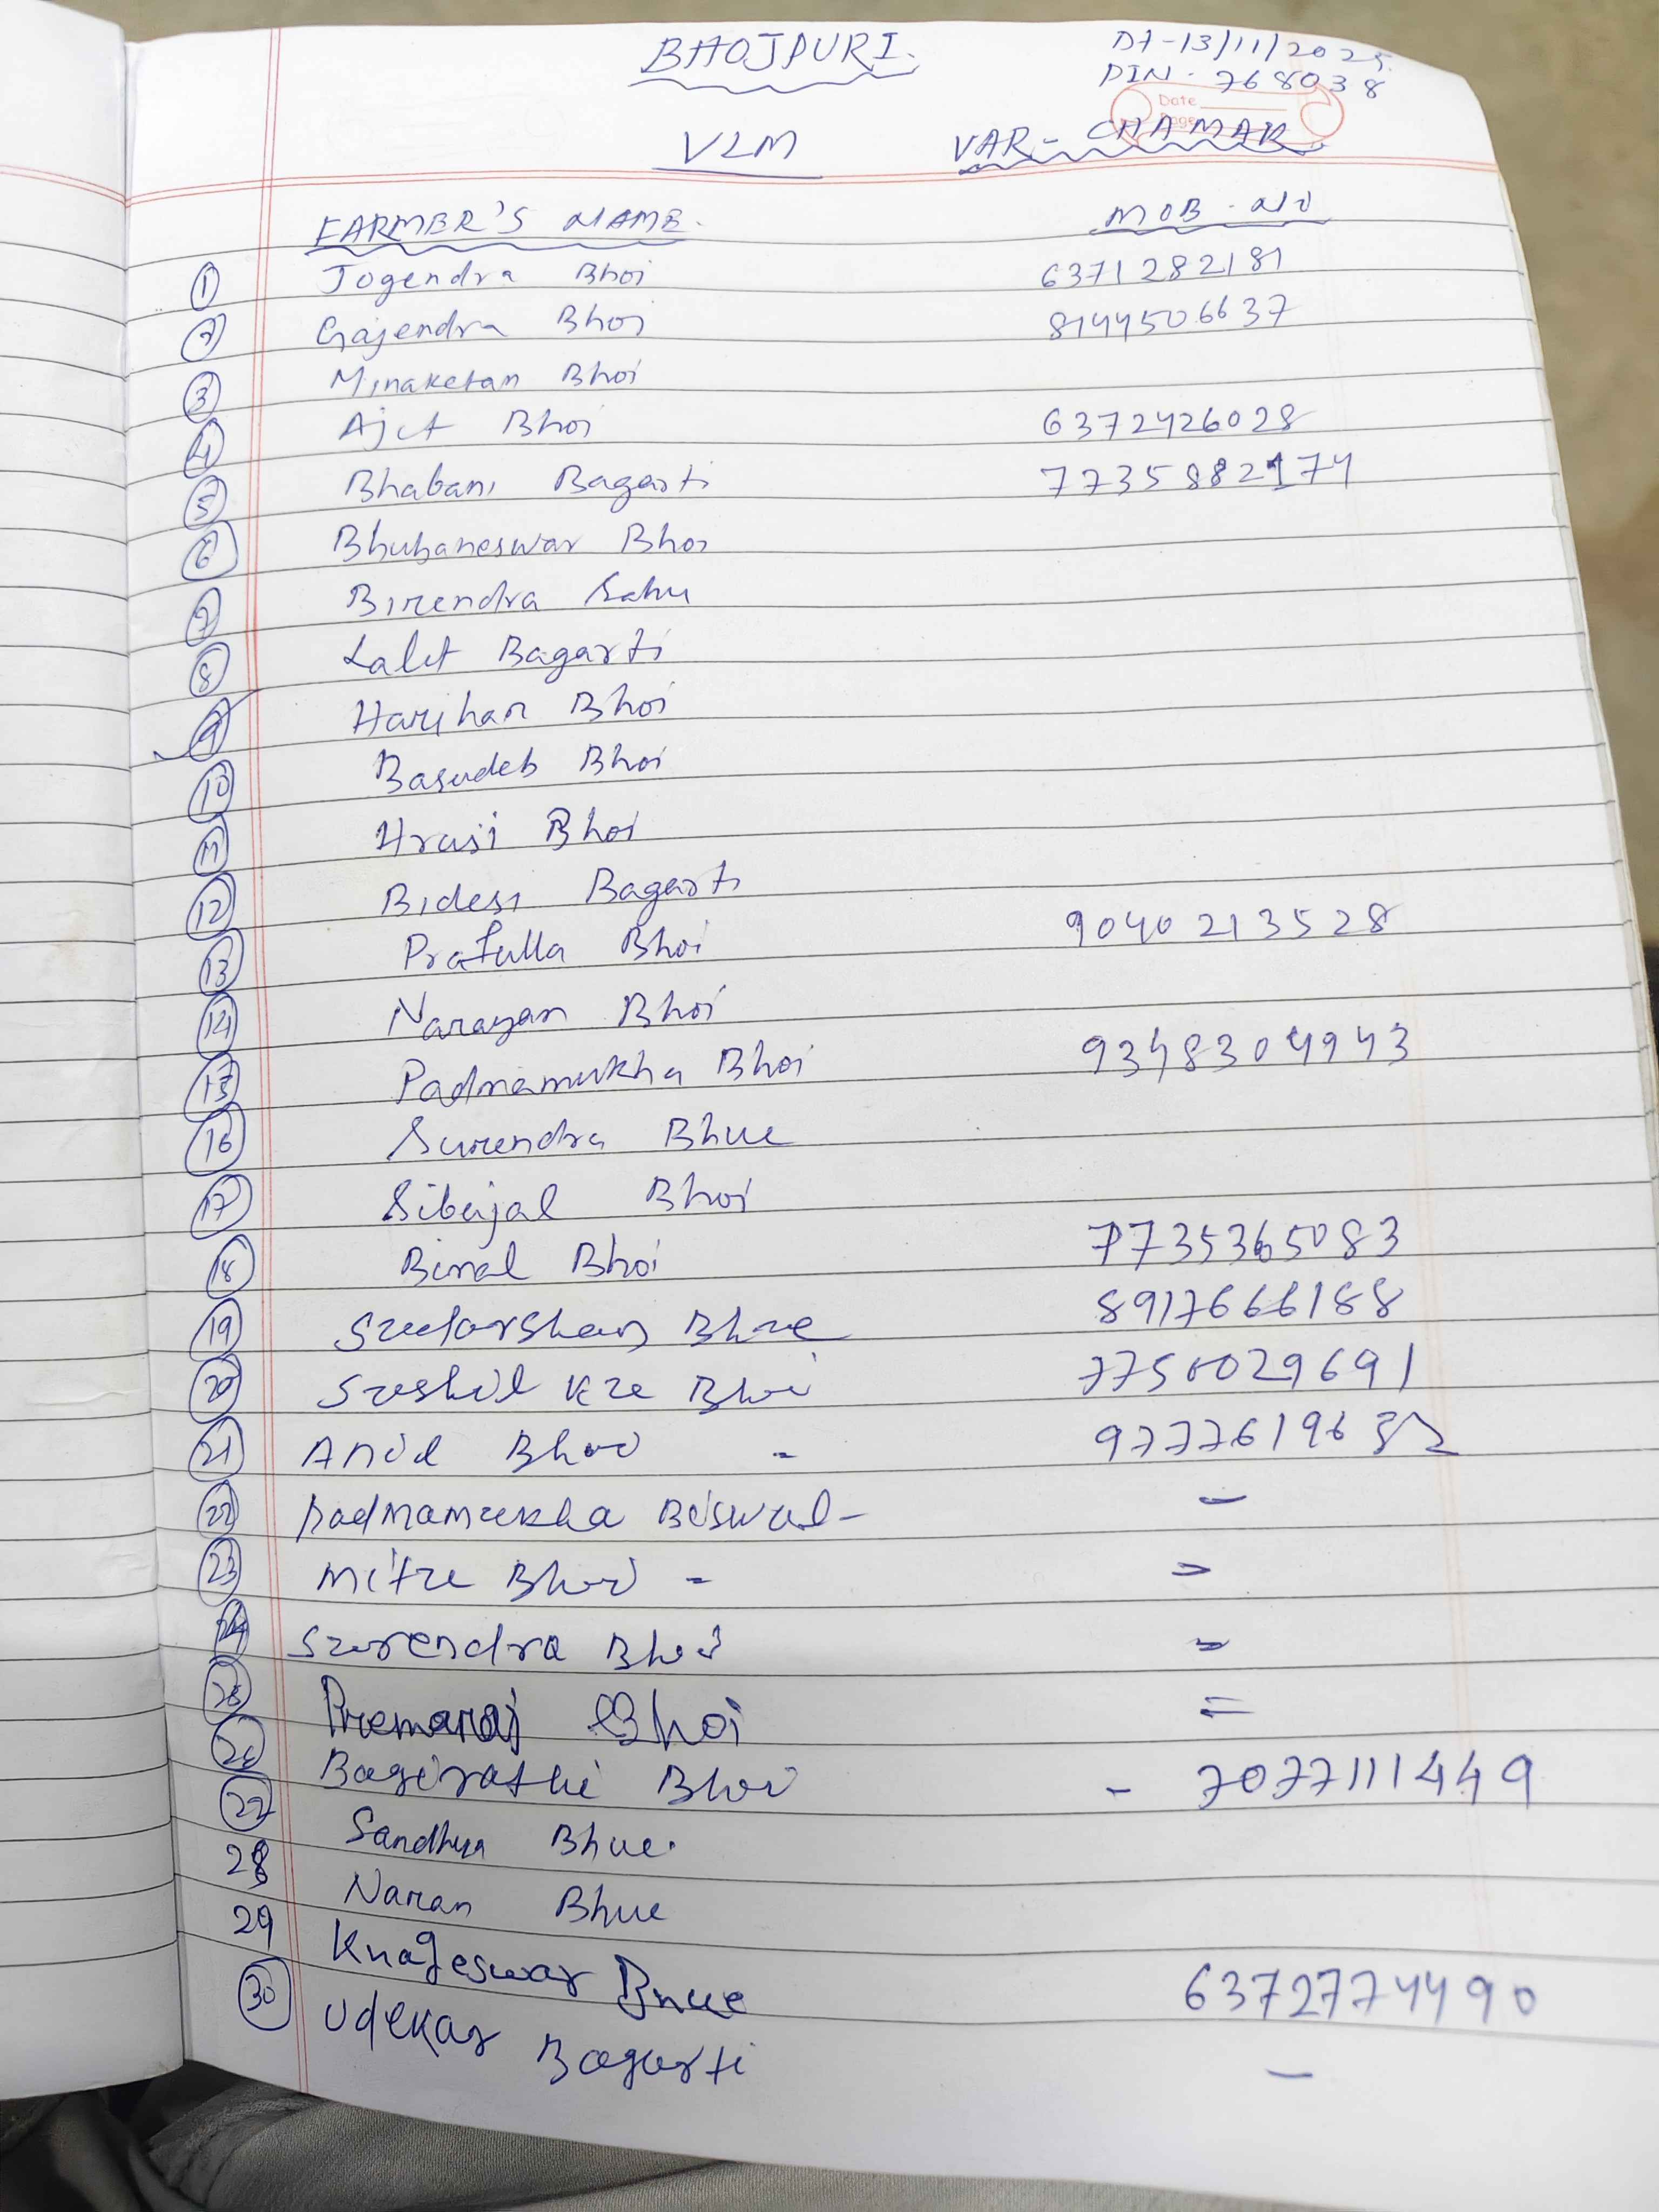 BHOJPURI.
DT-13/11/2025
PIN - 768038
Date
Page
VLM VAR - CHAMAK
FARMER'S NAME. MOB - NO
1 Jogendra Bhoi 6371282181
2 Gajendra Bhoi 8144506637
3 Minaketan Bhoi
4 Ajit Bhoi 6372426028
5 Bhabani Bagarti
6 Bhubaneswar Bhoi
7 Birendra Sahu
8 Lalit Bagarti
9 Harihar Bhoi
10 Basudeb Bhoi
11 Hrasi Bhoi
12 Bidesi Bagarti
13 Prafulla Bhoi 90402 13528
14 Narayan Bhoi
15 Padmamukha Bhoi 9348304943
16 Surendra Bhue
17 Sibajal Bhoi
18 Bimal Bhoi 7735365083
19 Sudarshan Bhue 8917666188
20 Sushil Ku Bhoi 7750029691
21 Anil Bhoi - 9777619632
22 Padmamukha Biswal - -
23 Mitu Bhoi - =
24 Surendra Bhoi =
25 Premaraj Bhoi =
26 Bagirathi Bhoi - 7077111449
27 Sandhya Bhue.
28 Naran Bhue
29 Khageswar Bhue 6372774490
30 Udekar Bagarti -